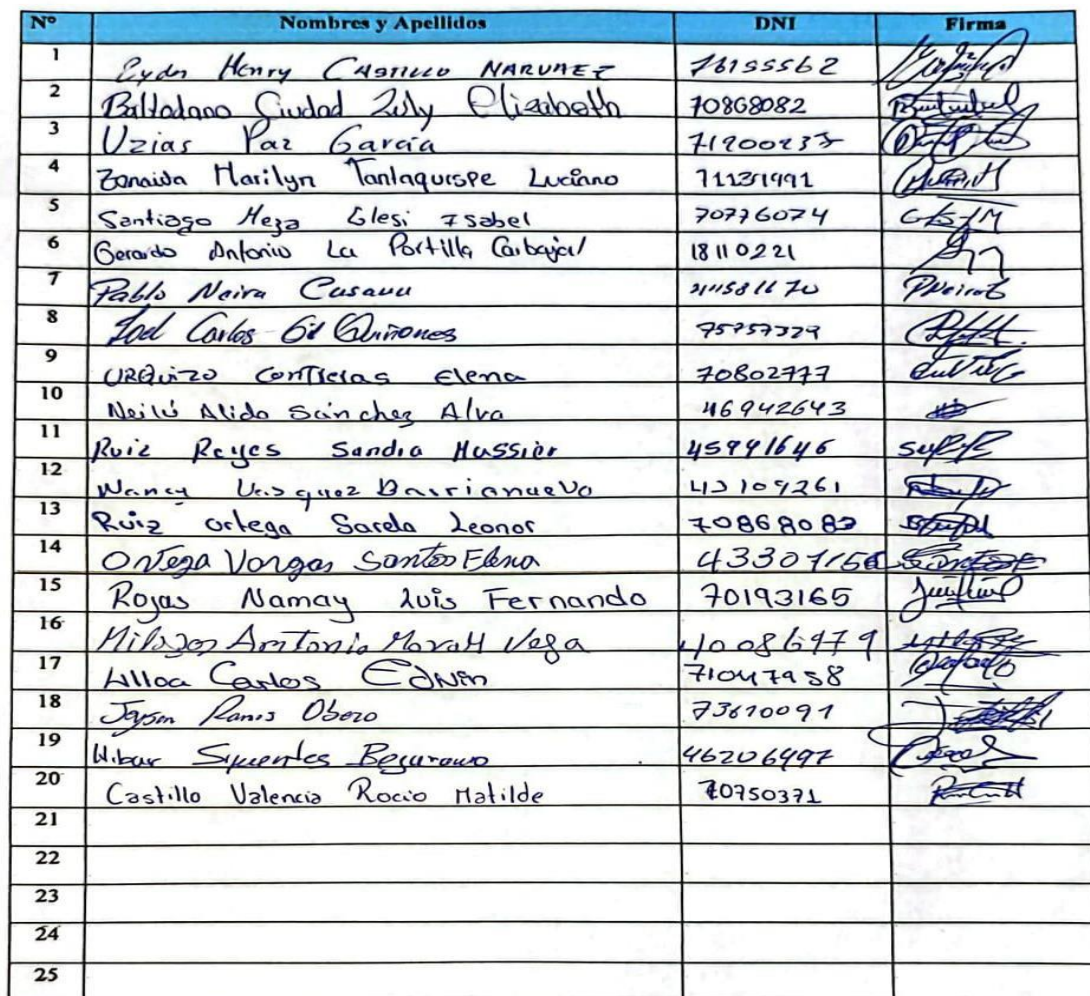 Nº Nombres y Apellidos DNI Firma
1 Eyder Henry Castillo NARVAEZ 76155562
2 Baltodano Ciudad Zuly Elizabeth 70868082
3 Uzias Paz Garcia
4 Zenaida Marilyn Tantaquispe Luciano 71131991
5 Santiago Meza Glesi Isabel 70776074
6 Gerardo Antonio La Portilla Carbajal 18110221
7 Pablo Neira Casana PNeiraC
8 Joel Carlos Gil Quiñones 75757329
9 URQuizo Contreras Elena 70802777
10 Neilú Alida Sánchez Alva 46942643
11 Ruiz Reyes Sandra Massier 45991646
12 Nancy Vasquez Barrianuevo 43109261
13 Ruiz ortega Sarela Leonor 70868083
14 Ortega Vargas Santos Elena
15 Rojas Namay Luis Fernando 70193165
16 Vega
17 Ulloa Carlos Edwin 71047958
18 Jayson Obezo 73610091
19 46206497
20 Castillo Valencia Rocio Matilde 70750371
21
22
23
24
25